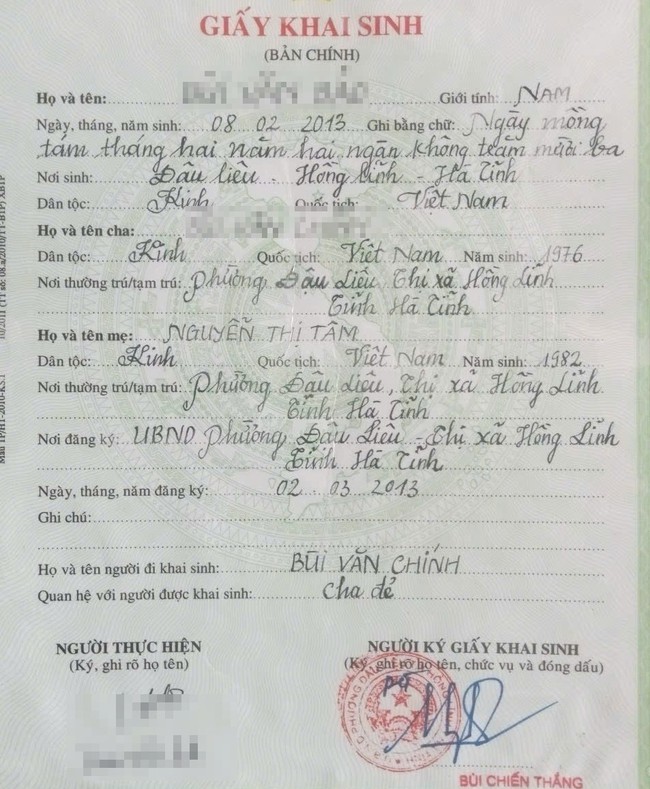 GIẤY KHAI SINH
(BẢN CHÍNH)
Họ và tên: Giới tính: NAM
Ngày, tháng, năm sinh: 08 02 2013 Ghi bằng chữ: Ngày mồng
tám tháng hai năm hai ngàn không trăm mười ba
Nơi sinh: Đậu Liêu - Hồng Lĩnh - Hà Tĩnh
Dân tộc: Kinh Quốc tịch: Việt Nam
Họ và tên cha:
Dân tộc: Kinh Quốc tịch: Việt Nam Năm sinh: 1976
Nơi thường trú/tạm trú: Phường Đậu Liêu, Thị xã Hồng Lĩnh
Tỉnh Hà Tĩnh
Họ và tên mẹ: NGUYỄN THỊ TÂM
Dân tộc: Kinh Quốc tịch: Việt Nam Năm sinh: 1982
Nơi thường trú/tạm trú: Phường Đậu Liêu, Thị xã Hồng Lĩnh
Tỉnh Hà Tĩnh
Nơi đăng ký: UBND Phường Đậu Liêu - Thị xã Hồng Lĩnh
Tỉnh Hà Tĩnh
Ngày, tháng, năm đăng ký: 02 03 2013
Ghi chú:
Họ và tên người đi khai sinh: BÙI VĂN CHÍNH
Quan hệ với người được khai sinh: cha đẻ
NGƯỜI THỰC HIỆN NGƯỜI KÝ GIẤY KHAI SINH
(Ký, ghi rõ họ tên) (Ký, ghi rõ họ tên, chức vụ và đóng dấu)
BÙI CHIẾN THẮNG